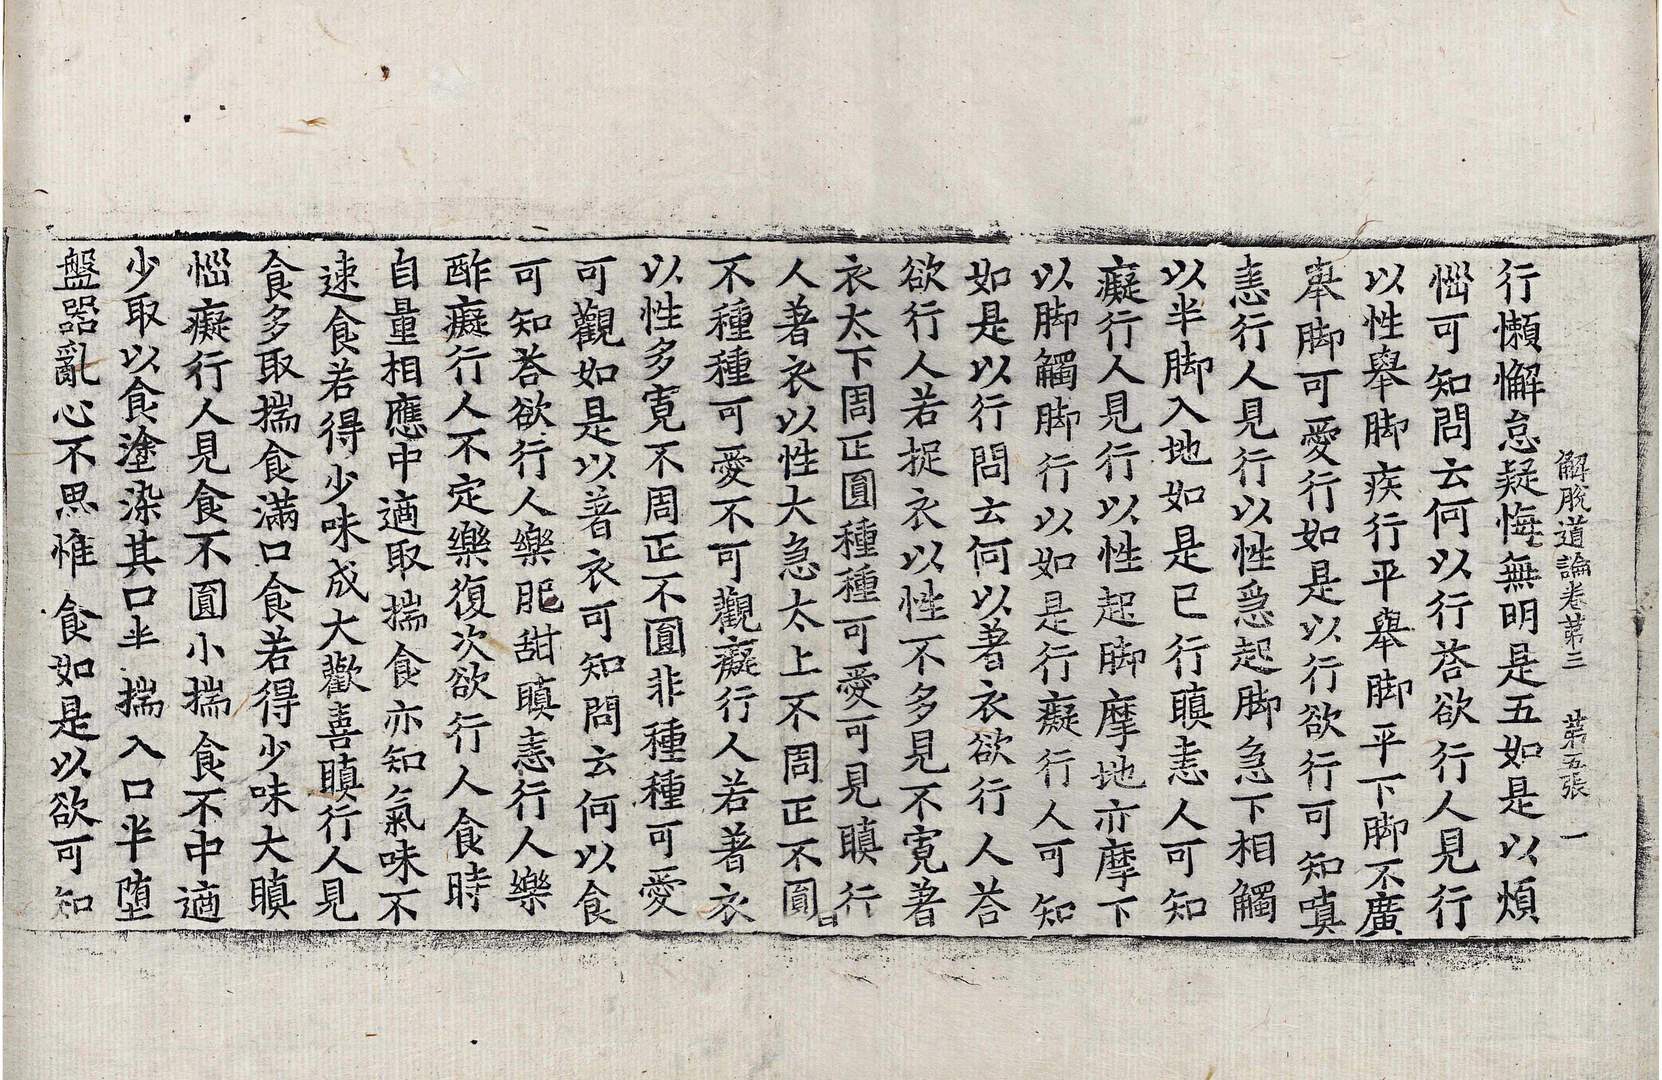 解脫道論卷第三　第五張　一
行懶懈怠疑悔無明是五如是以煩
惱可知問云何以行荅欲行人見行
以性舉脚疾行平舉脚平下脚不廣
舉脚可愛行如是以行欲行可知嗔
恚行人見行以性急起脚急下相觸
以半脚入地如是已行瞋恚人可知
癡行人見行以性起脚摩地亦摩下
以脚觸脚行以如是行癡行人可知
如是以行問云何以著衣欲行人荅
欲行人若捉衣以性不多見不寬著
衣太下周正圓種種可愛可見瞋行
人著衣以性大急太上不周正不圓
不種種可愛不可觀癡行人若著衣
以性多寬不周正不圓非種種可愛
可觀如是以著衣可知問云何以食
可知荅欲行人樂肥甜瞋恚行人樂
酢癡行人不定樂復次欲行人食時
自量相應中適取揣食亦知氣味不
速食若得少味成大歡喜瞋行人見
食多取揣食滿口食若得少味大瞋
惱癡行人見食不圓小揣食不中適
少取以食塗染其口半揣入口半墮
盤器亂心不思惟食如是以欲可知